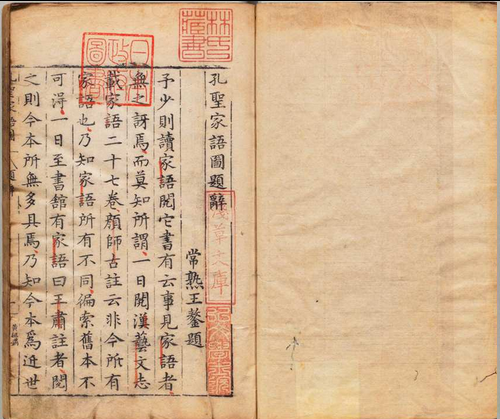 孔聖家語圖題辭
常熟王鏊題
予少則讀家語閱它書有云事見家語者
無之訝焉而莫知所謂一日閱漢藝文志
載家語二十七卷顏師古註云非今所有
家語也乃知家語所有不同徧索舊本不
可得一日至書舘有家語曰王肅註者閱
之則今本所無多具焉乃知今本爲近世
林氏藏書
淺草文庫